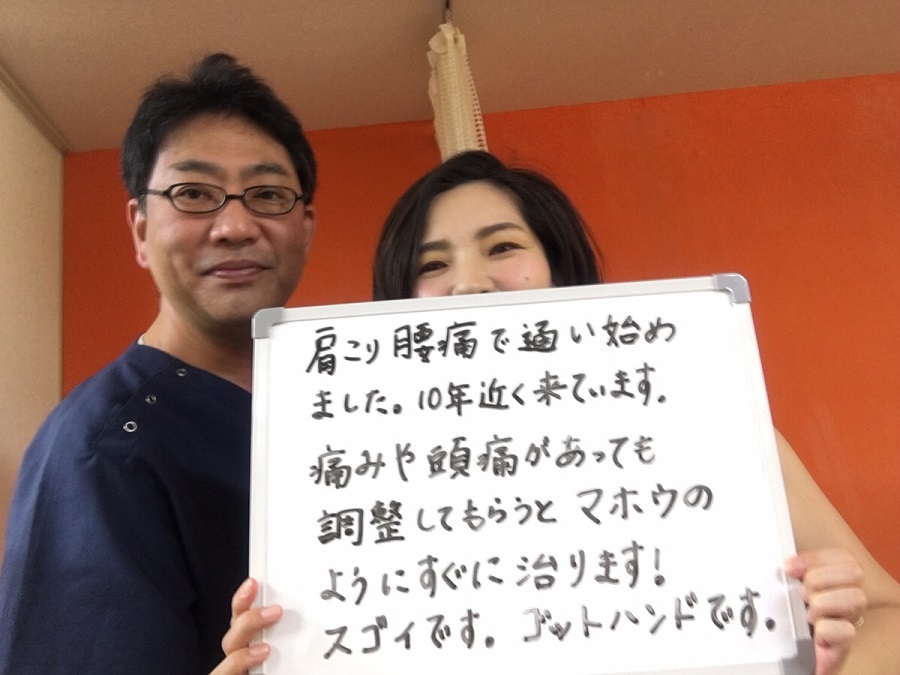 肩こり腰痛で通い始め
ました。10年近く来ています。
痛みや頭痛があっても
調整してもらうとマホウの
ようにすぐに治ります!
スゴイです。ゴットハンドです。